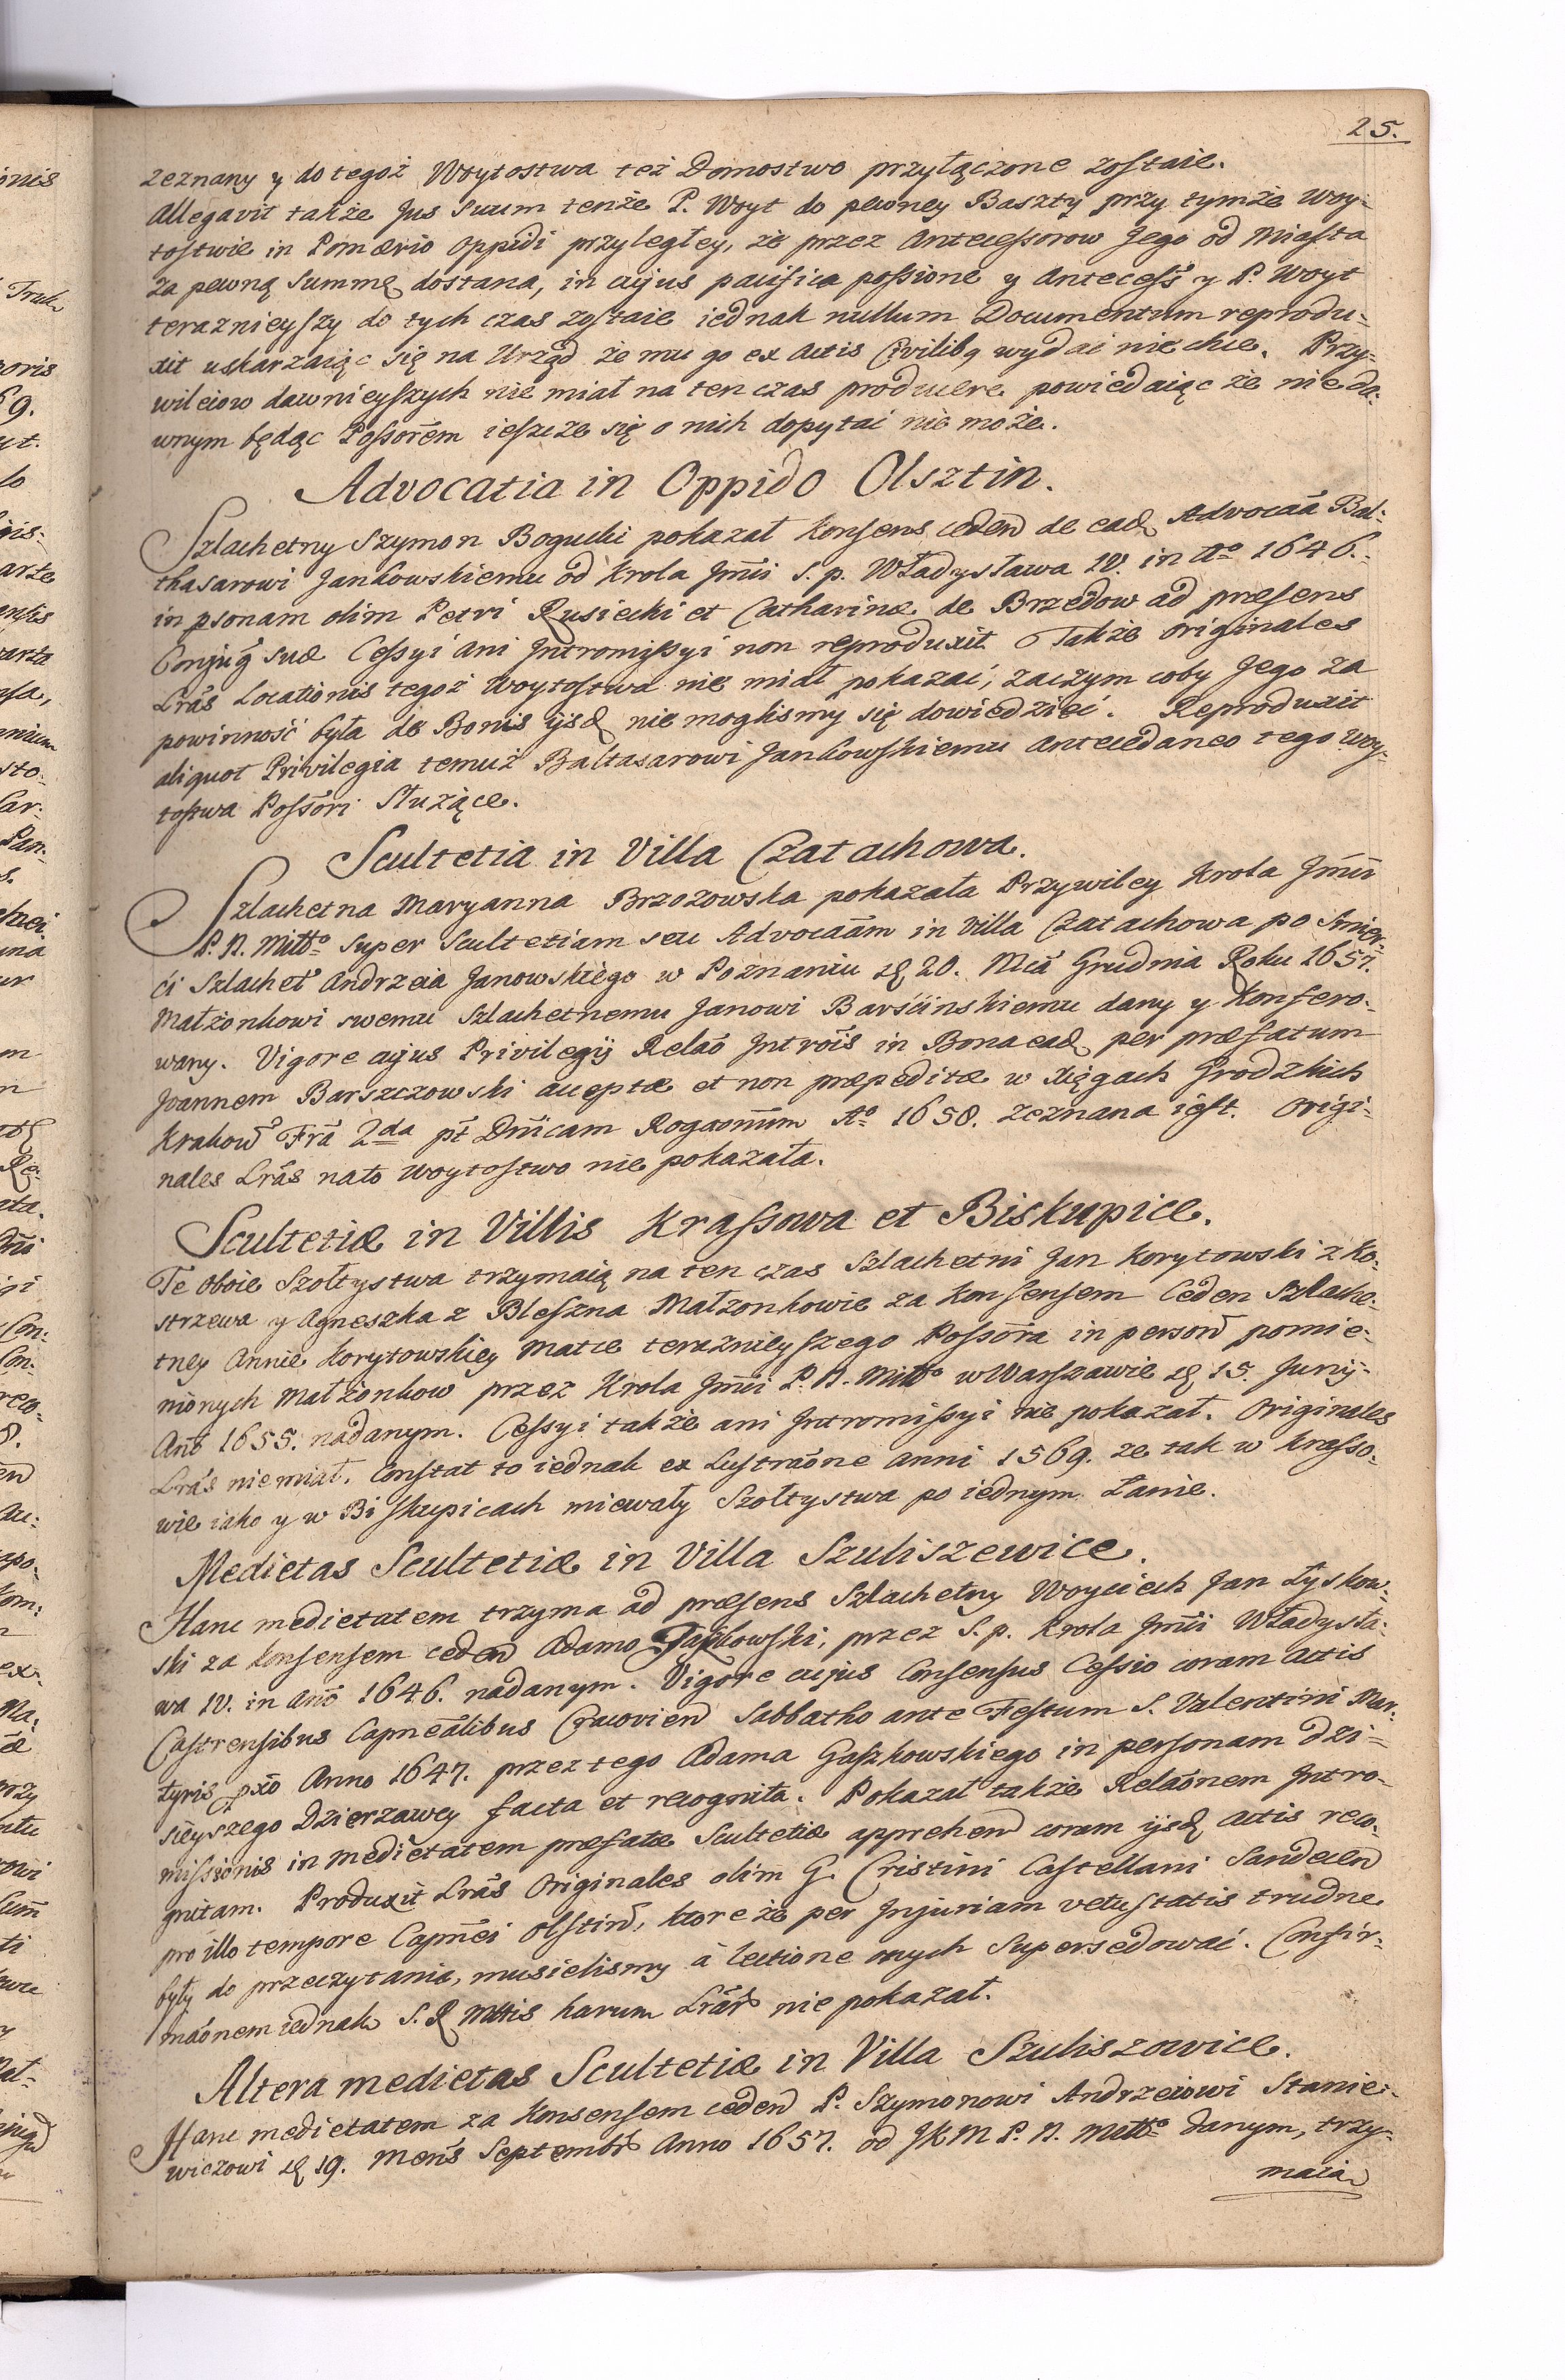 25.
zeznany y do tegoż Woytostwa też Domostwo przyłączone zostaie.
Allegavit także Jus Suum tenże P. Woyt do pewney Baszty przy tymże Woy-
tostwie in Pomærio Oppidi przyległey, że przez Antecessorow Jego od Miasta
za pewną Summę dostana, in cujus pacifica possione y Antecess̃ y P. Woyt
terazniejszy do tych czas zostaie iednak nullum Documentum reprodu-
xit uskarzaiąc się na Urząd że mu go ex Actis Civilibq wydać nie chce. Przy-
wileiow dawnieyszych nie miał na ten czas producere powiedaiąc że nieda-
wnym będąc Possorẽm ieszcze się o nich dopytać nie może.
Advocatia in Oppido Olsztin.
Szlachetny Szymon Bogucki pokazał Konsens ceden̄ de ead. Advocaã Bal-
thasarowi Jankowskiemu od Krola Jmći S. p. Władysława IV. in Aº 1646.
in psonam olim Petri Rusiecki et Catharinæ de Brzedow ad præsens
Conjug̃ suæ Cessyi ani Intromissyi non reproduxit. Także Originales
Lrãs Locationis tegoż Woytostwa nie miał pokazać, zaczym coby Jego za
powinność była de Bonis ijsd. nie moglismy się dowiedzieć. Reproduxit
aliquot Privilegia temuż Baltasarowi Jankowskiemu Antecedaneo tego Woy-
tostwa Possõri Służące.
Scultetia in Villa Czatachowa.
Szlachetna Maryanna Brzozowska pokazała Przywiley Krola Jmći
P. N. Mittº super Scultetiam seu Advocaãm in Villa Czatachowa po Smier-
ći Szlachet̃ Andrzeia Janowskiego w Poznaniu d. 20. Mcã Grudnia Roku 1657.
Małżonkowi swemu Szlachetnemu Janowi Barścinskiemu dany y Konfero-
wany. Vigore cujus Privilegij Relaõ Introĩs in Bona ead. per præfatum
Joannem Barszczowski acceptæ et non præpeditæ w Xięgach Grodzkich
Krakow̃ Frã 2da pt̃ Dnĩcam Rogaonũm Aº 1658. zeznana iest. Origi-
nales Lrãs nato Woytostwo nie pokazała.
Scultetiæ in Villis Krassowa et Biskupice.
Te oboie Szołtystwa trzymaią na ten czas Szlachetni Jan Korytowski z Ko-
strzewa y Agneszka z Bleszna Małżonkowie za Konsensem Ceden Szlache-
tney Annie Korytowskiey Matce teraznieyszego Possõra in person̄ pomie-
nionych Małżonkow przez Krola Jmći P. N. Mittº w Warszawie d. 15. Junij
Anõ 1655. nadanym. Cessyi także ani Intromissyi nie pokazał. Originales
Lrãs nie miał. Constat to iednak ex Lustraõne anni 1569. ze tak w Krasso-
wie iako y w Biskupicach miewały Szołtystwa po iednym Łanie.
Medietas Scultetiæ in Villa Szuliszewice.
Hanc medietatem trzyma ad præsens Szlachetny Woyciech Jan Łyskow-
ski za Konsensem ceden̄ Adamo Jaszkowski, przez S. p. Krola Jmći Władysła-
wa IV. in Anõ 1646. nadanym. Vigore cujus Consensus Cessio coram Actis
Castrensibus Capneãlibus Cracovien̄ Sabbatho ante Festum S. Valentini Mar-
tyris pxõ Anno 1647. przez tego Adama Gaszkowskiego in personam dzi-
sieyszego Dzierzawcy facta et recognita. Pokazał także Relaõnem Intro-
missionis in medietatem præfatæ Scultetiæ apprehen̄ coram ijsd. Actis reco-
gnitam. Produxit Lrãs Originales olim G. Cristini Castellani Sandecen̄
pro illo tempore Capnẽi Olstin̄, ktore że per Injuriam vetustatis trudne
były do przeczytania, musielismy à lectione onych Supersedować. Confir-
maõnem iednak S. R. Mttis harum Lrãr̃ nie pokazał.
Altera medietas Scultetiæ in Villa Szuliszowice.
Hanc medietatem za Konsensem ceden̄ P. Szymonowi Andrzeiowi Stanie-
wiczowi d. 19. Mens̃ Septembr̃ Anno 1657. od JKM P. N. Mttº danym, trzy-
maia